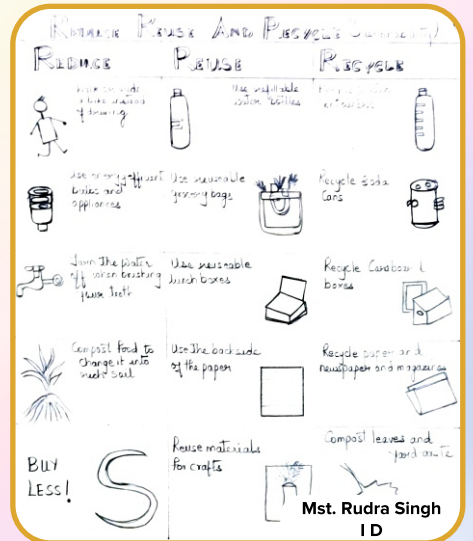 REDUCE REUSE AND RECYCLE
REDUCE REUSE RECYCLE
bike instead
of driving
Use refillable
water bottles
Use energy efficient
bulbs and
appliances
Use reusable
grocery bags
Recycle soda
cans
Turn the water
off when brushing
your teeth
Use reuseable
lunch boxes
Recycle Cardboard
boxes
Compost food to
change it into
soil
Use the backside
of the paper
Recycle paper and
newspaper and magazines
BUY
LESS!
Reuse materials
for crafts
Compost leaves and
yard
Mst. Rudra Singh
I D